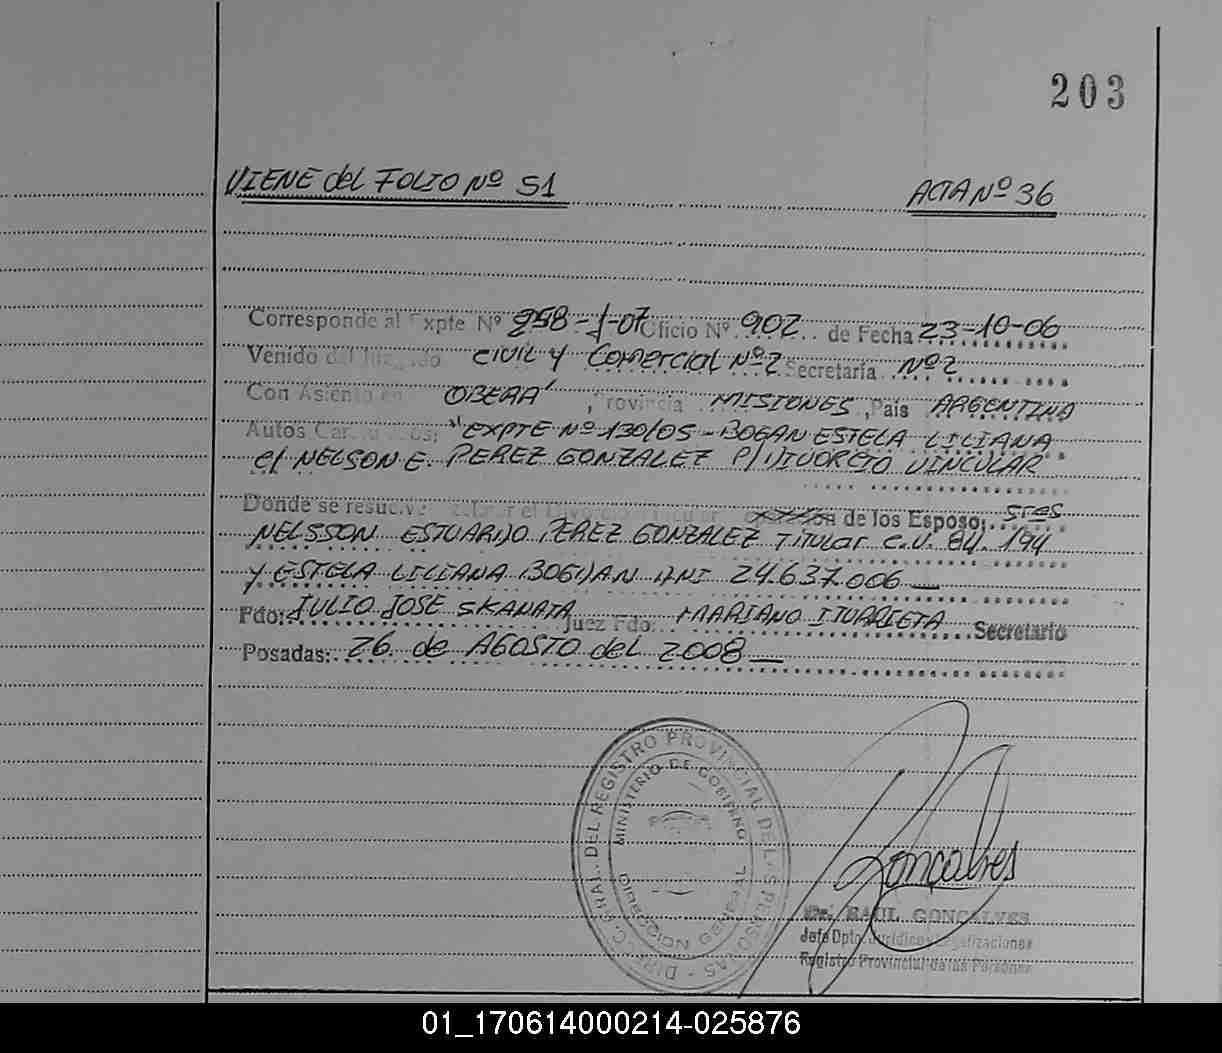 203
VIENE del FOLIO Nº 51
ACTA Nº 36
Corresponde al Expte Nº 958-J-07 Oficio Nº 902 de Fecha 23-10-06
Venido del Juzgado CIVIL Y COMERCIAL Nº 2 Secretaría Nº 2
Con Asiento en OBERÁ, Provincia MISIONES, País ARGENTINA
Autos Caratulados; "EXPTE Nº 130/05 - BOGAN ESTELA LILIANA
c/ NELSON E. PEREZ GONZALEZ P/ DIVORCIO VINCULAR
Donde se resuelve el Divorcio Vincular de los Esposo; sres
NELSSON ESTUARDO PEREZ GONZALEZ TITULAR C.U. 84.194
Y ESTELA LILIANA BOGDAN DNI 24.637.006
Fdo: JULIO JOSE SKANATA Juez Fdo: MARIANO ITURRIETA Secretario
Posadas: 26 de AGOSTO del 2008
DEL REGISTRO PROVINCIAL DE LAS PERSONAS
MINISTERIO DE GOBIERNO
DIRECCION GENERAL
Goncalves
Dr. RAUL GONCALVES
Jefe Dpto. Jurídico y Legalizaciones
Registro Provincial de las Personas
01_170614000214-025876